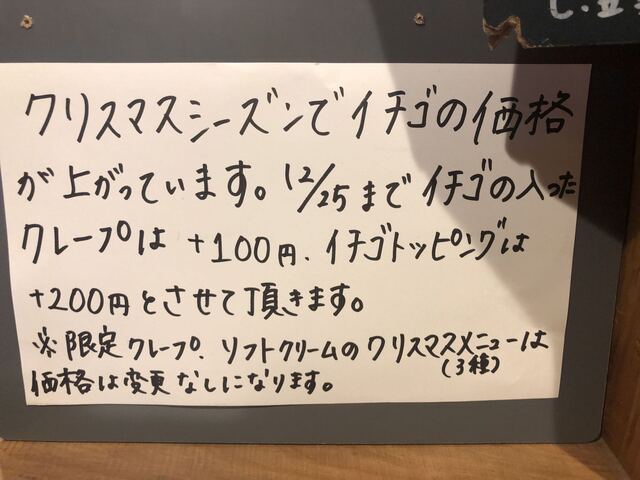 クリスマスシーズンでイチゴの価格
が上がっています。12/25までイチゴの入った
クレープは +100円、イチゴトッピングは
+200円とさせて頂きます。
※限定クレープ、ソフトクリームのクリスマスメニューは
(3種)
価格は変更なしになります。